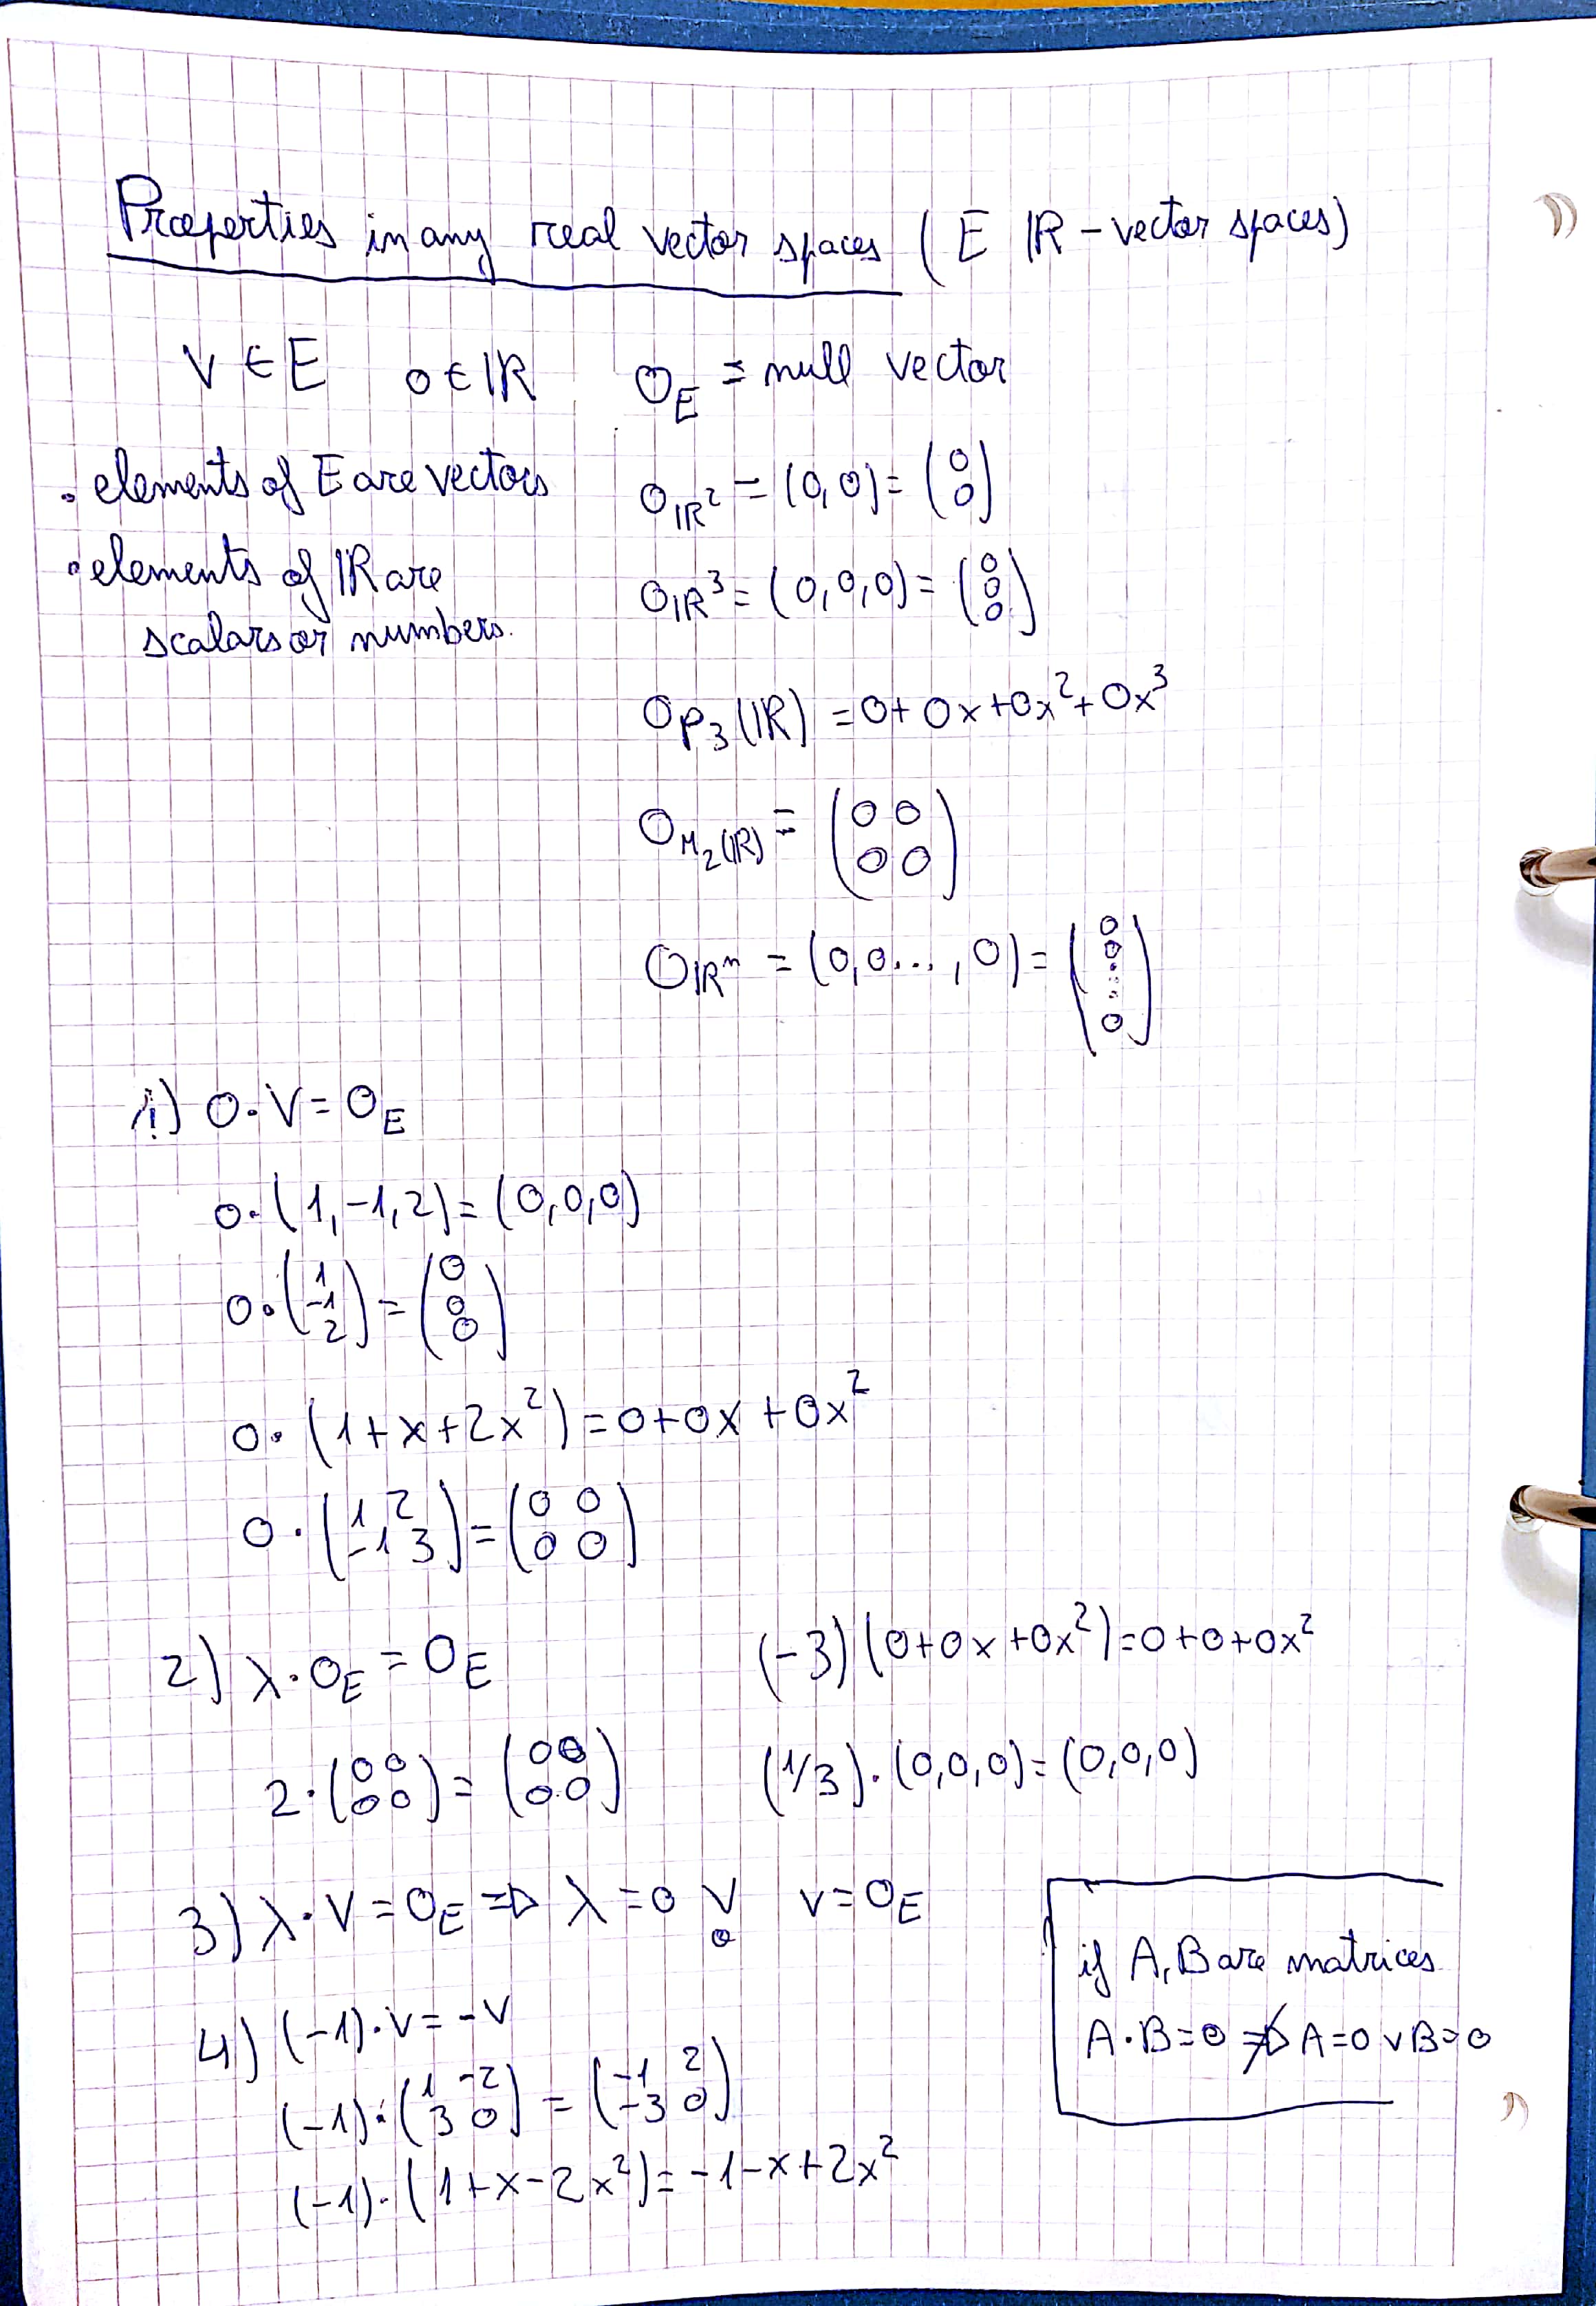 Properties in any real vector spaces (E ℝ-vector spaces)
v ∈ E   0 ∈ ℝ   0_E = null vector
• elements of E are vectors
• elements of ℝ are
scalars or numbers.
0_ℝ² = (0,0) = (0 ; 0)
0_ℝ³ = (0,0,0) = (0 ; 0 ; 0)
0_P₃(ℝ) = 0+0x+0x²+0x³
0_M₂(ℝ) = (0 0 ; 0 0)
0_ℝⁿ = (0,0...,0) = (0 ; 0 ; ⋮ ; 0)
1) 0·v = 0_E
0·(1,-1,2) = (0,0,0)
0·(1 ; -1 ; 2) = (0 ; 0 ; 0)
0·(1+x+2x²) = 0+0x+0x²
0·(1 2 ; -1 3) = (0 0 ; 0 0)
2) λ·0_E = 0_E
2·(0 0 ; 0 0) = (0 0 ; 0 0)
(-3)(0+0x+0x²) = 0+0+0x²
(1/3)·(0,0,0) = (0,0,0)
3) λ·v = 0_E ⇒ λ=0 ∨ v=0_E
o
if A, B are matrices
A·B=0 ⇏ A=0 ∨ B=0
4) (-1)·v = -v
(-1)·(1 -2 ; 3 0) = (-1 2 ; -3 0)
(-1)·(1+x-2x²) = -1-x+2x²